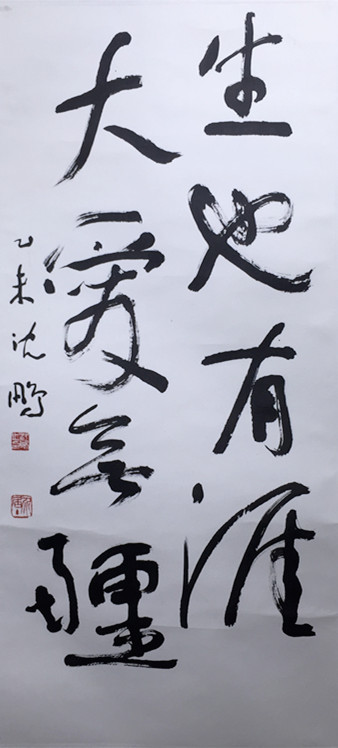 生也有涯
大爱无疆
乙未沈鹏